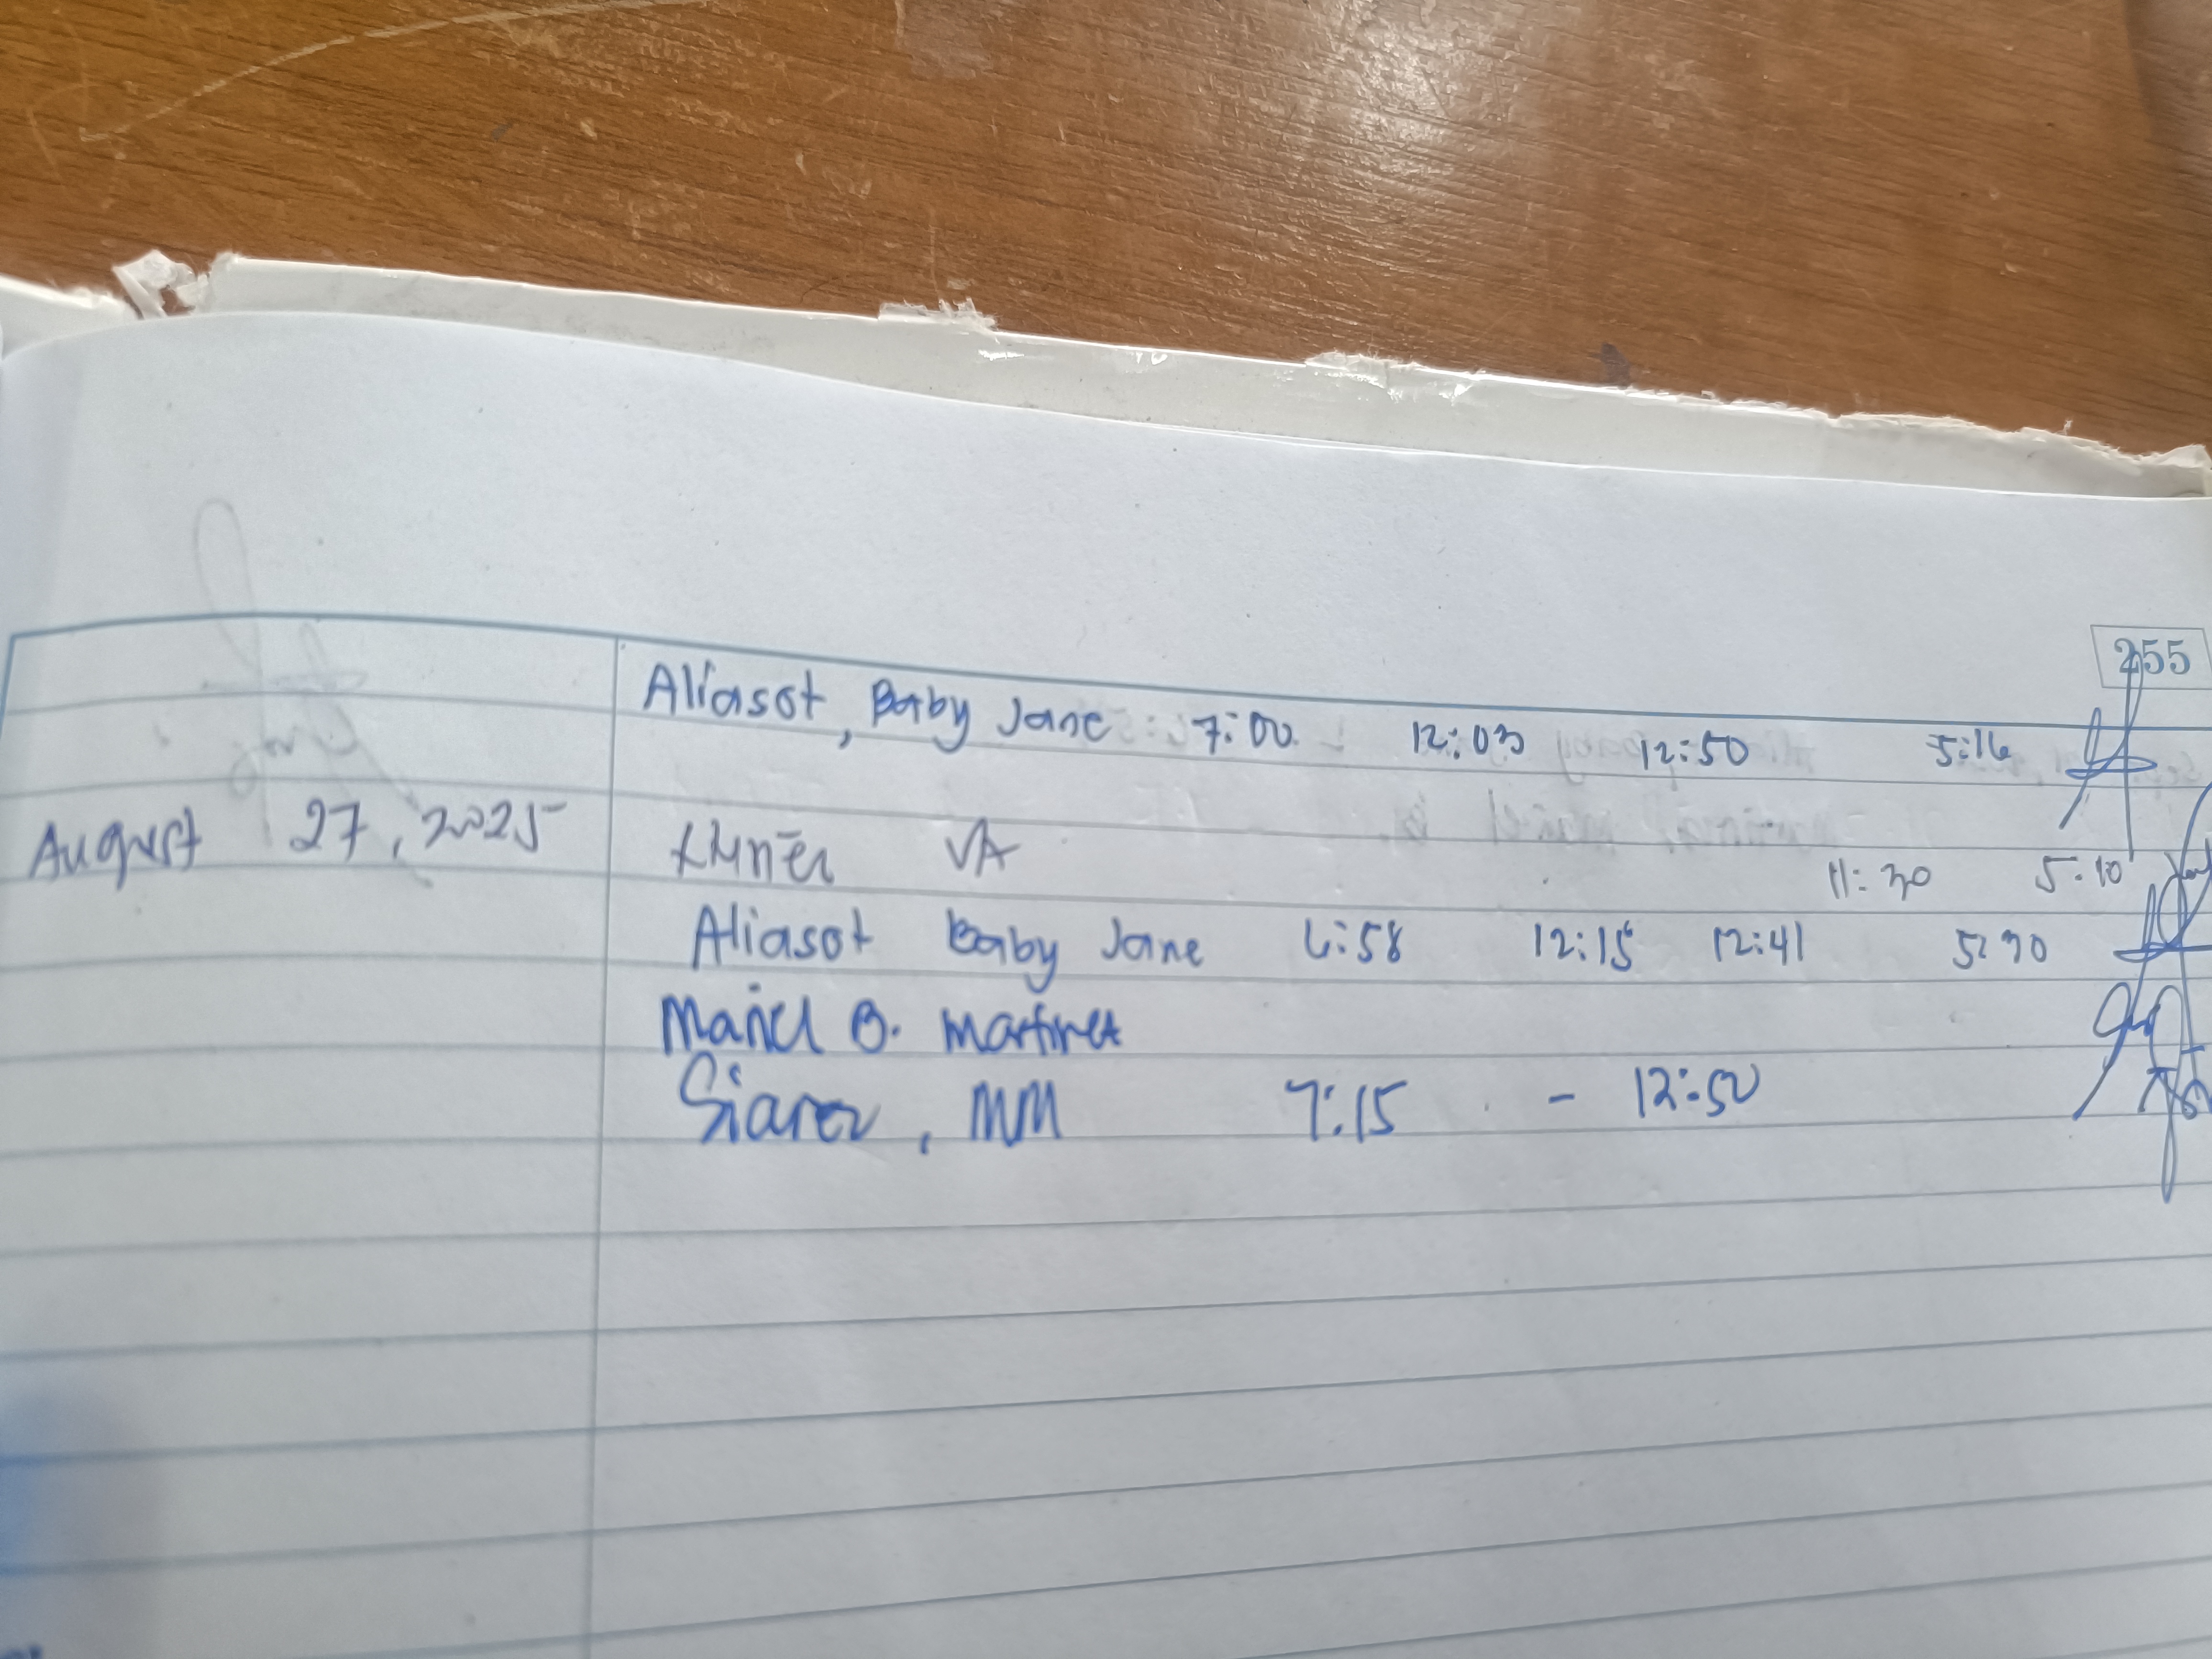 255
Aliasot, Baby Jane 7:00 12:03 12:50 5:16
August 27, 2025 VA 11:30 5:10
Aliasot Baby Jane 6:58 12:15 12:41 5:30
Mariel B. Martinez
Siarez, MM 7:15 - 12:50